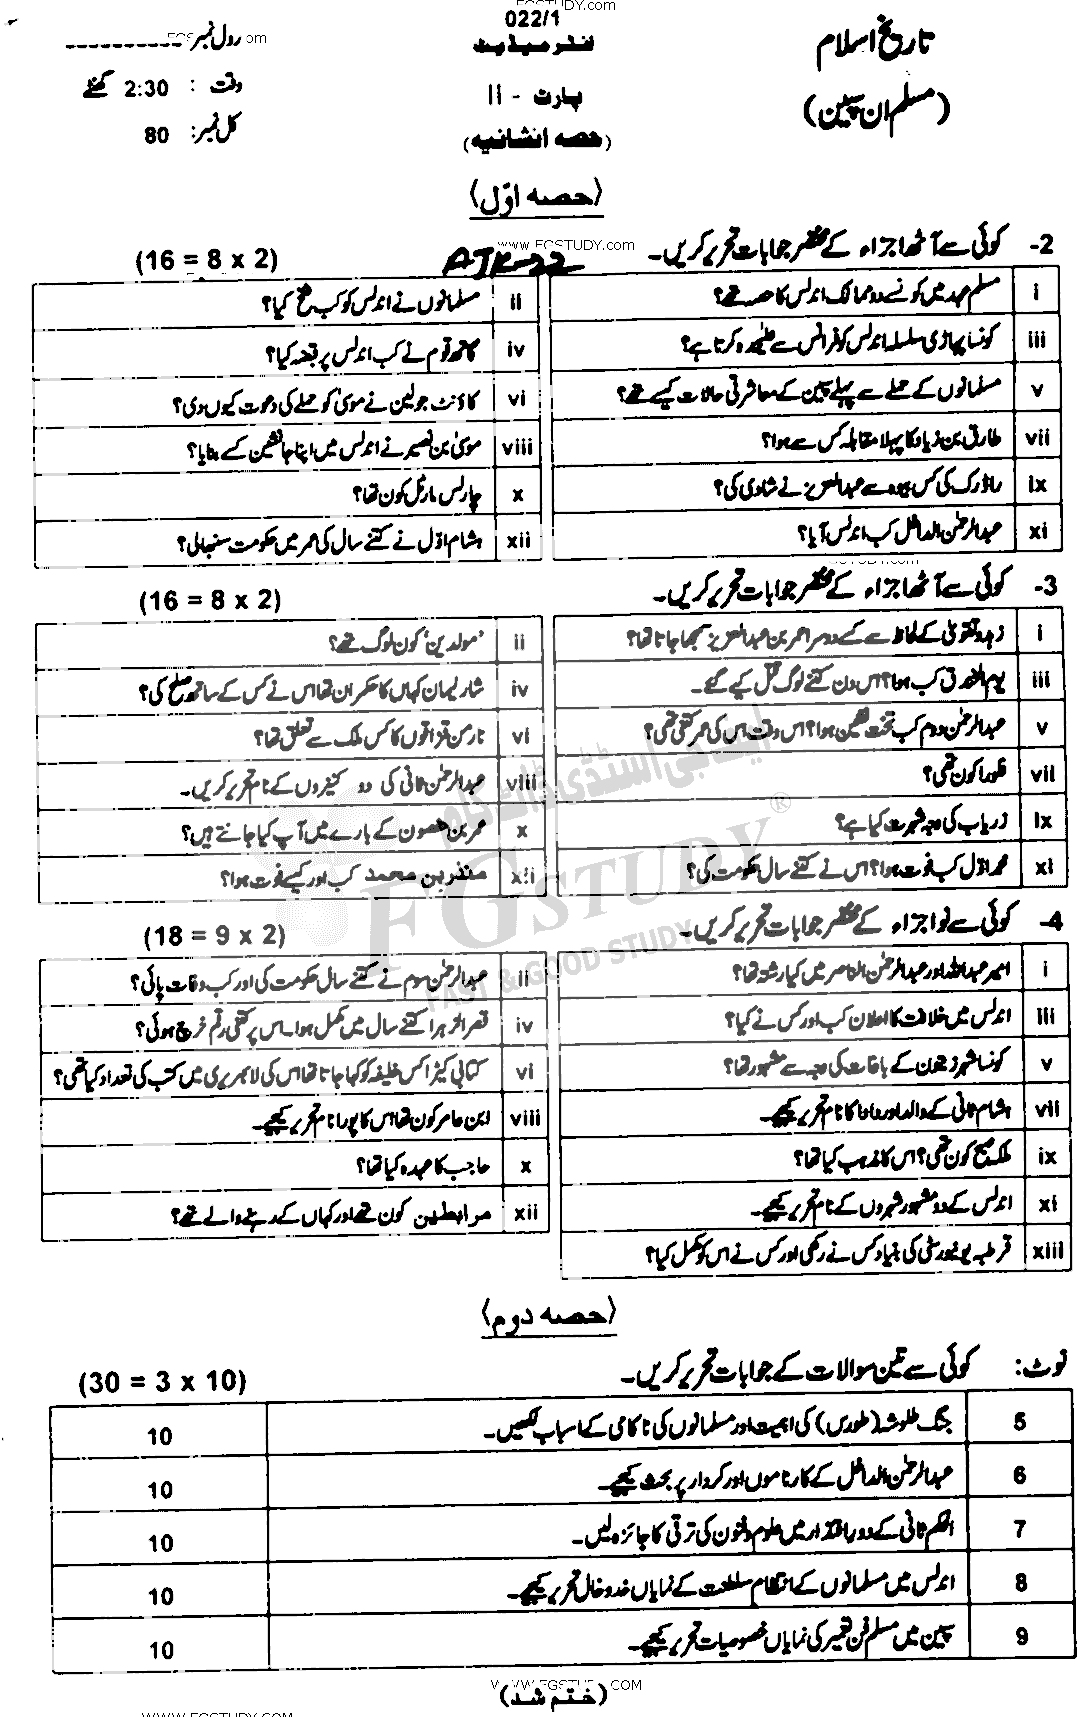 FGSTUDY.com
022/1
تاریخ اسلام
انٹرمیڈیٹ
رول نمبر ----------
(مسلم ان سپین)
پارٹ - II
وقت : 2:30 گھنٹے
(حصہ انشائیہ)
کل نمبر: 80
(حصہ اوّل)
www.FGSTUDY.com
2- کوئی سے آٹھ اجزاء کے مختصر جوابات تحریر کریں۔ (16 = 8 x 2)
AJK-22
i مسلم عہد میں کونسے دو ممالک اندلس کا حصہ تھے؟
ii مسلمانوں نے اندلس کو کب فتح کیا؟
iii کونسا پہاڑی سلسلہ اندلس کو فرانس سے علیحدہ کرتا ہے؟
iv گاتھ قوم نے کب اندلس پر قبضہ کیا؟
v مسلمانوں کے حملے سے پہلے سپین کے معاشرتی حالات کیسے تھے؟
vi کاؤنٹ جولین نے موسیٰ کو حملے کی دعوت کیوں دی؟
vii طارق بن زیاد کا پہلا مقابلہ کس سے ہوا؟
viii موسیٰ بن نصیر نے اندلس میں اپنا جانشین کسے بنایا؟
ix راڈرک کی کس بیوہ سے عبدالعزیز نے شادی کی؟
x چارلس مارٹل کون تھا؟
xi عبدالرحمٰن الداخل کب اندلس آیا؟
xii ہشام اوّل نے کتنے سال کی عمر میں حکومت سنبھالی؟
3- کوئی سے آٹھ اجزاء کے مختصر جوابات تحریر کریں۔ (16 = 8 x 2)
i زہد و تقویٰ کے لحاظ سے کسے دوسرا عمر بن عبدالعزیز سمجھا جاتا تھا؟
ii ’مولدین‘ کون لوگ تھے؟
iii یوم الخندق کب ہوا؟ اس دن کتنے لوگ قتل کیے گئے۔
iv شارلیمان کہاں کا حکمران تھا اس نے کس کے ساتھ صلح کی؟
v عبدالرحمٰن دوم کب تخت نشین ہوا؟ اس وقت اس کی عمر کتنی تھی؟
vi نارمن قزاقوں کا کس ملک سے تعلق تھا؟
vii فلورا کون تھی؟
viii عبدالرحمٰن ثانی کی دو کنیزوں کے نام تحریر کریں۔
ix زریاب کی وجہ شہرت کیا ہے؟
x عمر بن حفصون کے بارے میں آپ کیا جانتے ہیں؟
xi محمد اوّل کب فوت ہوا؟ اس نے کتنے سال حکومت کی؟
xii منذر بن محمد کب اور کیسے فوت ہوا؟
ایف جی اسٹڈی ڈاٹ کام
FG STUDY ®
FAST & GOOD STUDY
4- کوئی سے نو اجزاء کے مختصر جوابات تحریر کریں۔ (18 = 9 x 2)
i امیر عبداللہ اور عبدالرحمٰن الناصر میں کیا رشتہ تھا؟
ii عبدالرحمٰن سوم نے کتنے سال حکومت کی اور کب وفات پائی؟
iii اندلس میں خلافت کا اعلان کب اور کس نے کیا؟
iv قصر الزہرا کتنے سال میں مکمل ہوا۔ اس پر کتنی رقم خرچ ہوئی؟
v کونسا شہر زیتون کے باغات کی وجہ سے مشہور تھا؟
vi کتابی کیڑا کس خلیفہ کو کہا جاتا تھا اس کی لائبریری میں کتب کی تعداد کیا تھی؟
vii ہشام ثانی کے والد اور دادا کا نام تحریر کیجیے۔
viii ابن عامر کون تھا اس کا پورا نام تحریر کیجیے۔
ix ملکہ صبح کون تھی؟ اس کا مذہب کیا تھا؟
x حاجب کا عہدہ کیا تھا؟
xi اندلس کے دو مشہور شہروں کے نام تحریر کیجیے۔
xii مرابطین کون تھے اور کہاں کے رہنے والے تھے؟
xiii قرطبہ یونیورسٹی کی بنیاد کس نے رکھی اور کس نے اس کو مکمل کیا؟
(حصہ دوم)
نوٹ: کوئی سے تین سوالات کے جوابات تحریر کریں۔ (30 = 3 x 10)
5 جنگ طلوشہ (طورس) کی اہمیت اور مسلمانوں کی ناکامی کے اسباب لکھیں۔ 10
6 عبدالرحمٰن الداخل کے کارناموں اور کردار پر بحث کیجیے۔ 10
7 الحکم ثانی کے دور اقتدار میں علوم و فنون کی ترقی کا جائزہ لیں۔ 10
8 اندلس میں مسلمانوں کے انتظام سلطنت کے نمایاں خدوخال تحریر کیجیے۔ 10
9 سپین میں مسلم فن تعمیر کی نمایاں خصوصیات تحریر کیجیے۔ 10
WWW.FGSTUDY.COM
(ختم شد)
WWW.FGSTUDY.COM